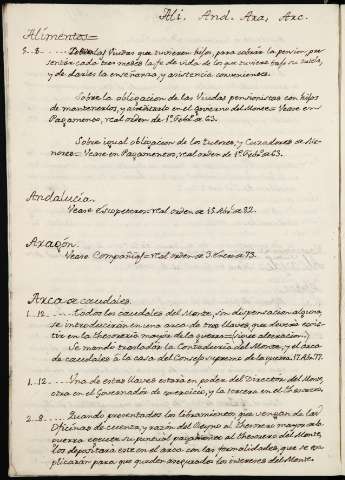 Ali. And. Ara. Arc.
Alimentos=
2..8.... Las Viudas que tuvieren hijos, para cobrar la pension, pre-
sentar cada tres meses la fe de vida de los que tuviere bajo su tutela,
y de darles la enseñanza, y asistencia conveniente.
Sobre la obligacion de las Viudas pensionistas con hijos
de mantenerlos, y acreditarlo en el govierno del Monte= Vease en
Pagamentos, real orden de 1º Febº de 63.
Sobre igual obligacion de los Tutores, y Curadores de Me-
nores= Vease en Pagamentos, real orden de 1º Febº de 63.
Andalucia.
Vease Escupetores= real orden de 15 Abril de 82.
Aragón.
Vease Compañias= real orden de 3 Enero de 73.
Arca de caudales.
1..12.... Todos los caudales del Monte, sin dispensacion alguna,
se introduciran en una arca de tres llaves, que deverá exis-
tir en la thesoreria mayor de la guerra= (sigue alteracion)
Se mando trasladar la Contaduria del Monte, y el arca
de caudales á la casa del Consejo supremo de la guerra. 17 Abl. 77.
1..12.... Una de estas llaves estará en poder del Director del Monte,
otra en el Governador de exercicio, y la tercera en el Thesorero.
2..8.... Quando presentados los libramientos, que vengan de las
Oficinas de cuenta, y razon del Reyno al thesorero mayor de la
guerra execute su puntual pagamento al thesorero del Monte,
los depositara este en el arca con las formalidades, que se ex-
plicarán para que queden asegurados los intereses del Monte.